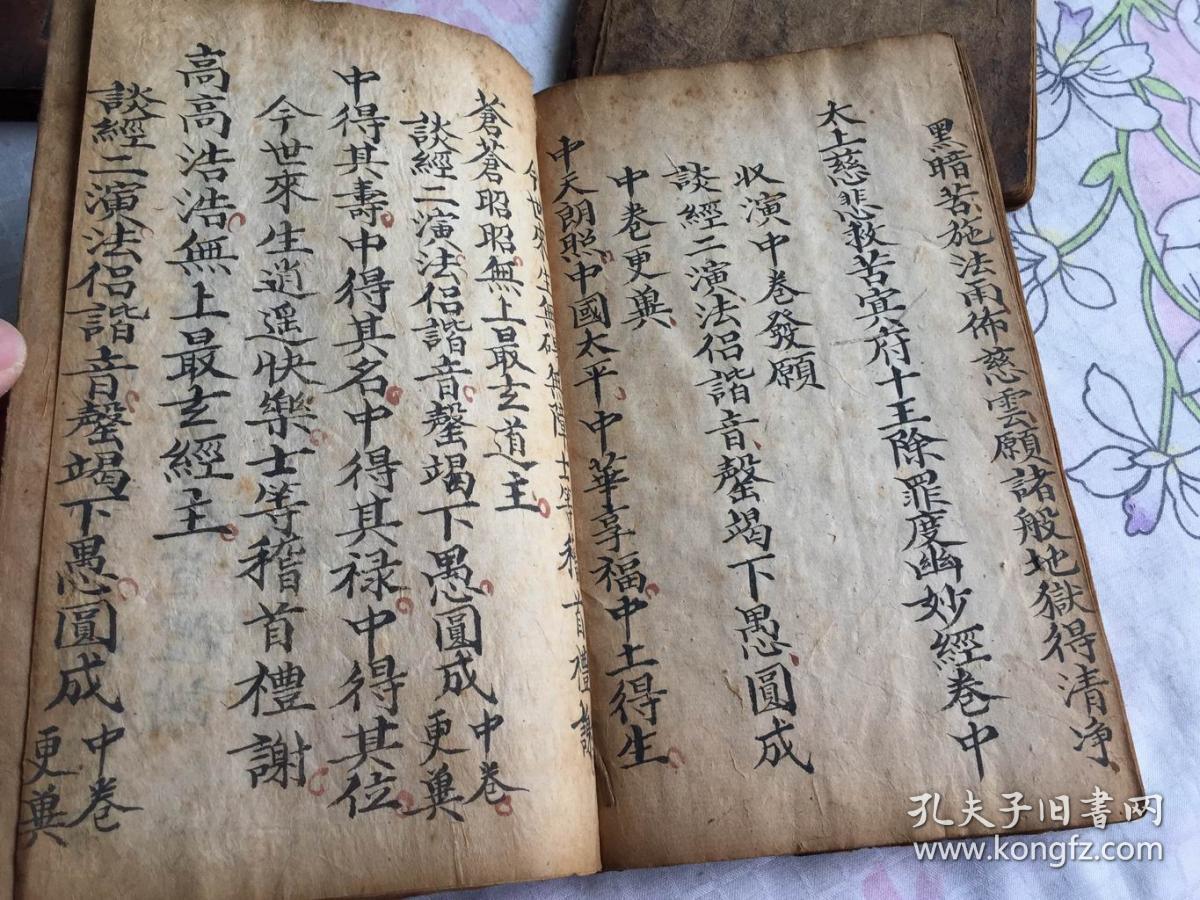 黑暗苦施法雨佈慈雲願諸般地獄得清净
太上慈悲救苦冥府十王除罪度幽妙經卷中
収演中卷發願
談經二演法侶諧音罄竭下愚圓成
中卷更奠
中天朗照中國太平中華享福中土得生
今世來生無碍無障士等稽首禮謝
蒼蒼昭昭無上最玄道主
談經二演法侶諧音罄竭下愚圓成中卷更奠
中得其壽中得其名中得其禄中得其位
今世來生逍遥快樂士等稽首禮謝
高高浩浩無上最玄經主
談經二演法侶諧音罄竭下愚圓成中卷更奠
孔夫子旧書网
www.kongfz.com